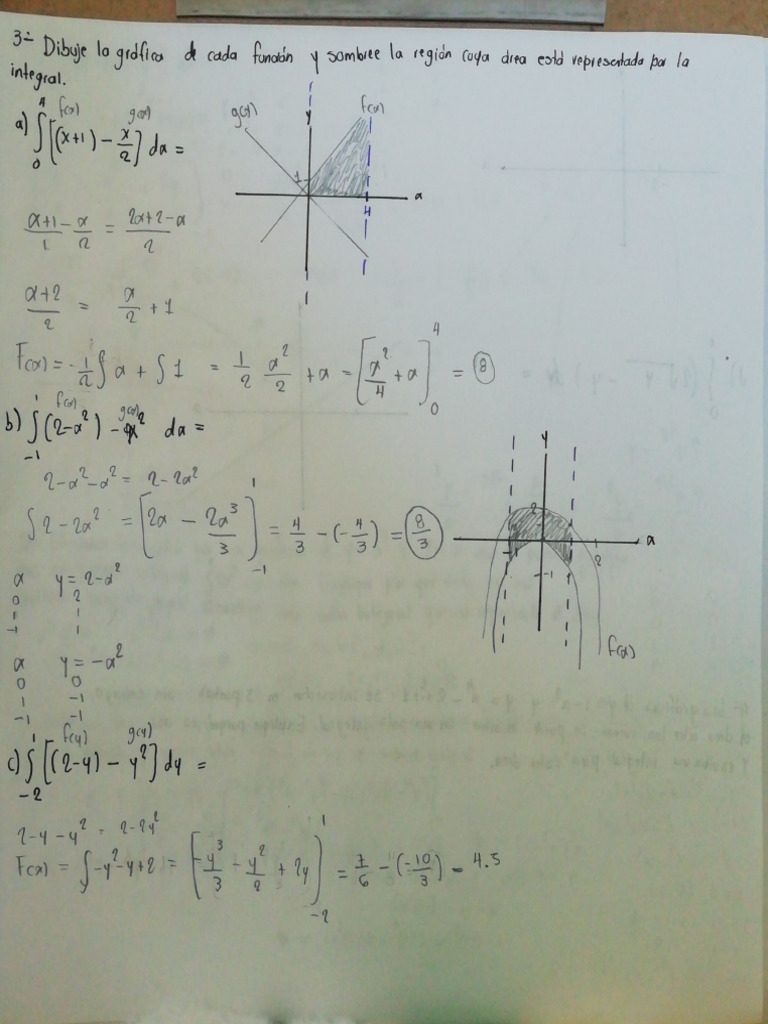 3.- Dibuje la gráfica de cada función y sombree la región cuya área está representada por la
integral.
f(x) g(x)
a) ∫₀⁴ [(x+1) - x/2] dx =
g(x) y f(x)
1
4 x
(x+1)/1 - x/2 = (2x+2-x)/2
(x+2)/2 = x/2 + 1
F(x) = 1/2 ∫ x + ∫ 1 = 1/2 x²/2 + x = [x²/4 + x]₀⁴ = 8
f(x) g(x)
b) ∫₋₁¹ (2-x²) - x² dx =
2-x²-x² = 2-2x²
∫ 2-2x² = [2x - 2x³/3]₋₁¹ = 4/3 - (-4/3) = 8/3
y
2
-1 1 2 x
-1
f(x)
x y=2-x²
0 2
1 1
-1 1
x y=-x²
0 0
1 -1
-1 -1
f(y) g(y)
c) ∫₋₂¹ [(2-y) - y²] dy =
2-y-y² = 2-2y²
F(x) = ∫ -y²-y+2 = [-y³/3 - y²/2 + 2y]₋₂¹ = 7/6 - (-10/3) = 4.5